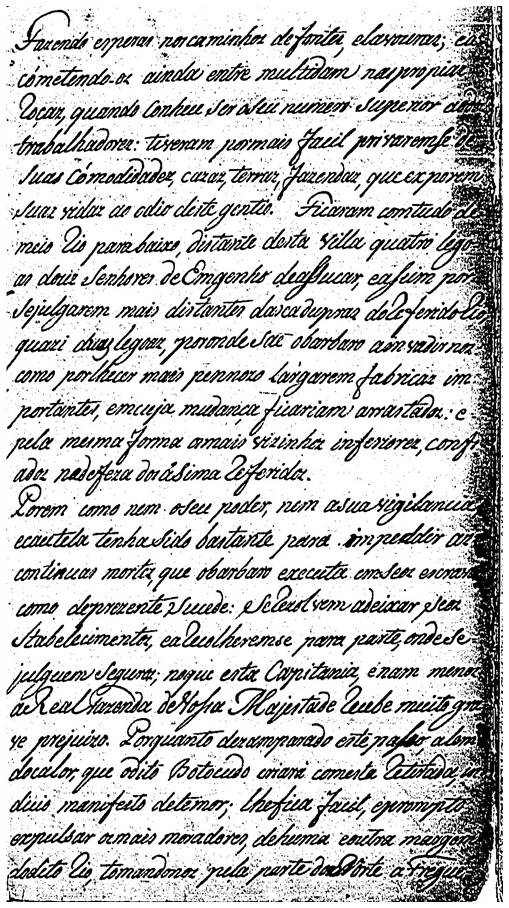 Fazendo esperas nos caminhos de fontes, e lavouras; e a
cómetendo-os ainda entre multidam nas propias
Rocas, quando conhece ser o seu numero superior aos
trabalhadores: tiveram por mais facil privaremse de
suas cómodidades, cazas, terras, fazendas, que exporem
suas vidas ao odio deste gentio. Ficaram comtudo de
meio Rio para baixo, distante desta Villa quatro lego-
as douz Senhores de Emgenho de assucar, e assim por
se julgarem mais distantes das cadupas do Referido Rio
quazi duas legoas, por onde sae o barbaro a envadirnos
como por lhecer mais pennozo largarem fabricas im
portantes, em cuja mudança ficariam arrastados: e
pela mesma forma a mais vizinhos inferiores, confi
ados na defeza dos ásima Referidos.
Porem como nem o seu poder, nem a sua vigilancia
e cautela tenha sido bastante para impeddir as
continuas mortes, que o barbaro executa em seos escravos
como de prezente sucede: se Rezolvem a deixar seos
Stabelecimentos, e a Recolheremse para parte, onde se-
julguem seguros; no que esta Capitania, e nam menos
a Real Fazenda de Vossa Majestade Recebe muito gra
ve prejuizo. Porquanto dezamparado este passo alem
do calor, que o dito Botocudo creará com esta Retirada in
dicio manifesto de temor; lhe fica facil, e prompto
expulsar os mais moradores, de huma e outra margem
do dito Rio, tomandonos pela parte do Norte a Fregue